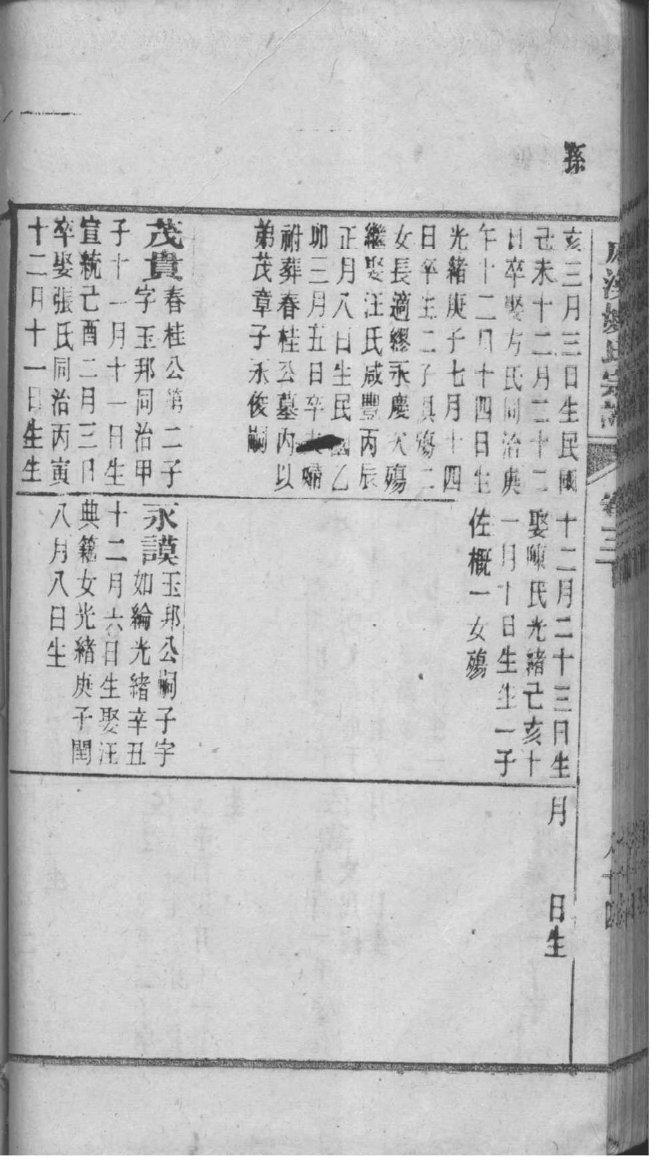 孫
氏宗譜
卷三
亥三月三日生民國
己未十二月二十二
日卒娶方氏同治庚
午十二月十四日生
光緒庚子七月十四
日卒生二子俱殤二
女長適繆永慶次殤
繼娶汪氏咸豐丙辰
正月八日生民國乙
卯三月五日卒夫婦
祔葬春桂公墓內以
弟茂章子永俊嗣
茂貴春桂公第二子
字玉邦同治甲
子十一月十一日生
宣統己酉二月三日
卒娶張氏同治丙寅
十二月十一日生生
十二月二十三日生
娶陳氏光緒己亥十
一月十日生生一子
佐概一女殤
永謨玉邦公嗣子字
如綸光緒辛丑
十二月六日生娶汪
典籍女光緒庚子閏
八月八日生
月 日生